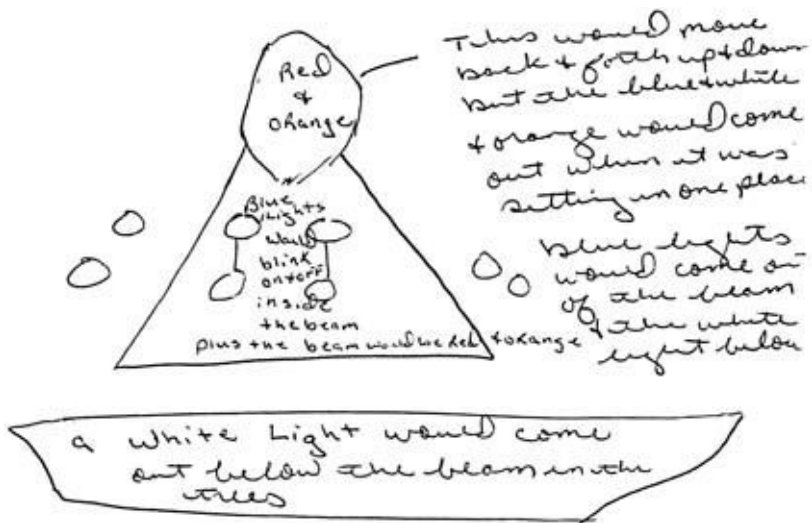 Red
&
orange
This would move
back & forth up & down
but the blue & white
& orange would come
out when it was
setting in one place
Blue
lights
would
blink
on & off
inside
the beam
plus the beam would be Red & orange
blue lights
would come out
of the beam
& the white
light below
a white Light would come
out below the beam in the
trees